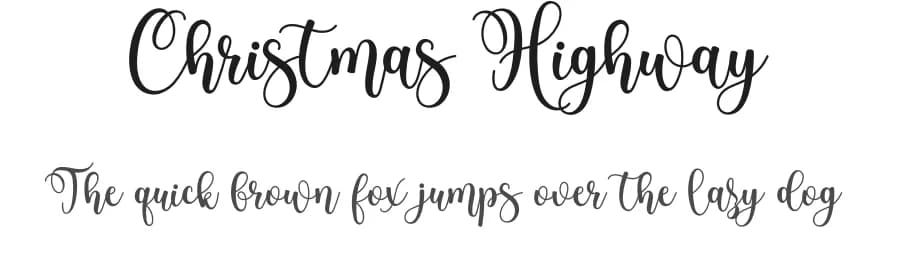 Christmas Highway
The quick brown fox jumps over the lazy dog